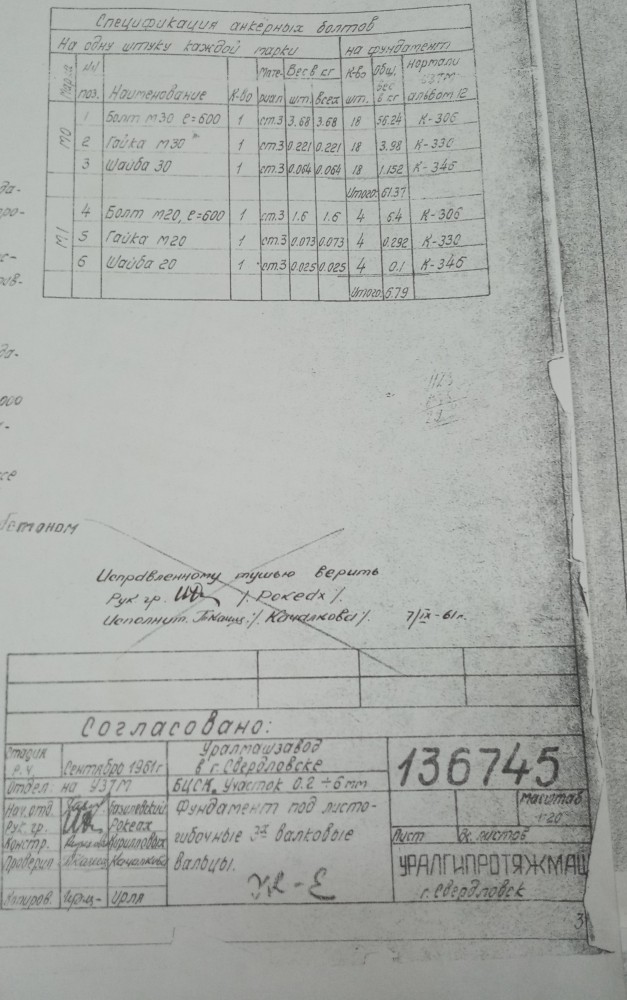 Спецификация анкерных болтов
На одну штуку каждой марки на фундамент
Марка №№ поз. Наименование К-во Мате- риал Вес в кг шт. всех К-во шт. Общ. вес в кг Нормали УЗТМ альбом 12
М0 1 Болт М30 l=600 1 ст.3 3.68 3.68 18 К-306
2 Гайка М30 1 ст.3 0.221 0.221 18 3.98 К-330
3 Шайба 30 1 ст.3 0.064 0.064 18 1.152 К-346
Итого: 61.37
М1 4 Болт М20, l=600 1 ст.3 1.6 1.6 4 6.4 К-306
5 Гайка М20 1 ст.3 0.073 0.073 4 0.292 К-330
6 Шайба 20 1 ст.3 0.025 0.025 4 0.1 К-346
Итого: 6.79
да-
ро-
да-
000
бетоном
Исправленному тушью верить
Рук. гр. /. Рокеах /.
Исполнит. /. Качалкова /. 7/IX-61г.
Согласовано:
Стадия
Р.Ч. Сентябрь 1961г
Отдел. на УЗТМ
Уралмашзавод
в г. Свердловске
БЦСК. Участок 0.2 ÷ 6 мм
Фундамент под листо-
гибочные 3х валковые
вальцы.
136745
Масштаб
1:20
Лист
листов
УРАЛГИПРОТЯЖМАШ
г. Свердловск
Нач. отд.
Рук. гр. Рокеах
Констр. Кирилловых
Проверил Качалкова
Копиров.
3